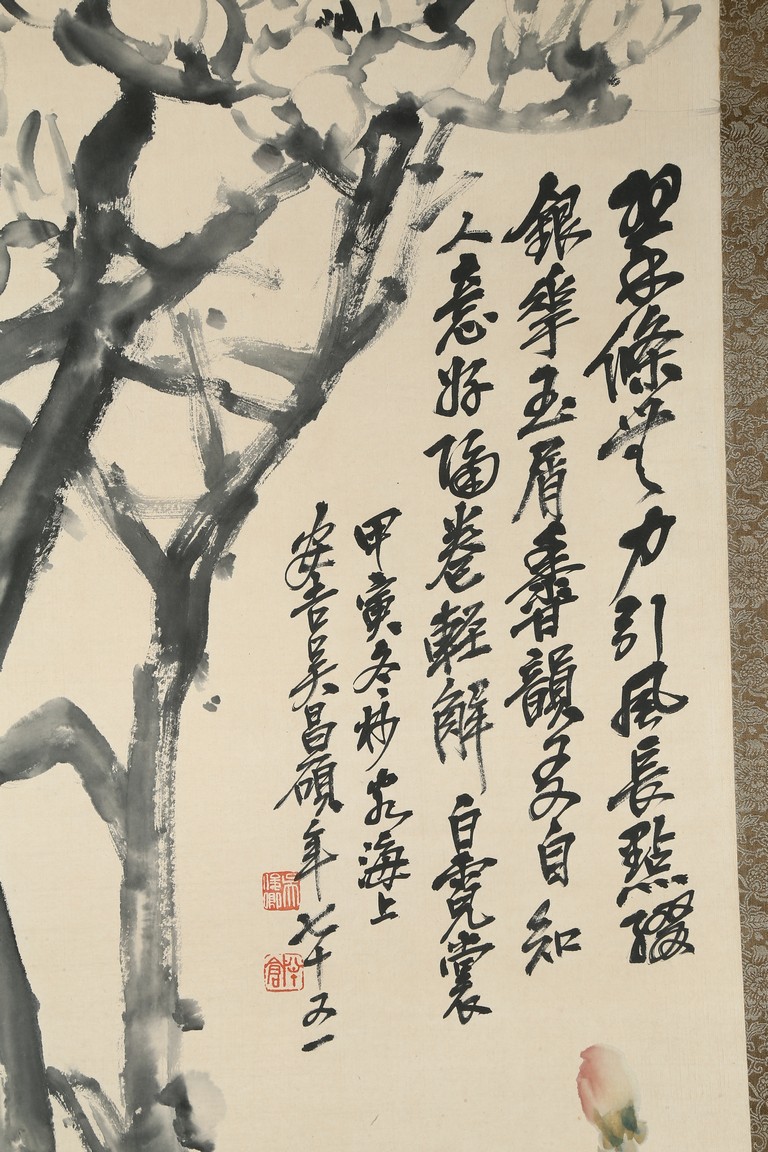 翠條無力引風長點綴
銀華玉屑香韻友自知
人意好隔卷輕解白霓裳
甲寅冬杪客海上
安吉吳昌碩年七十又一
吳俊卿